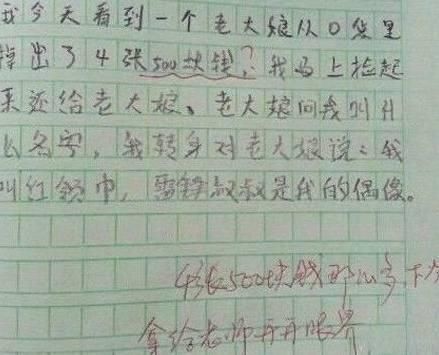 我今天看到一个老大娘从口袋里
掉出了4张500块钱？我马上捡起
来还给老大娘、老大娘问我叫什
么名字，我转身对老大娘说：我
叫红领巾，雷锋叔叔是我的偶像。
4张500块钱那么多，下次
拿给老师开开眼界